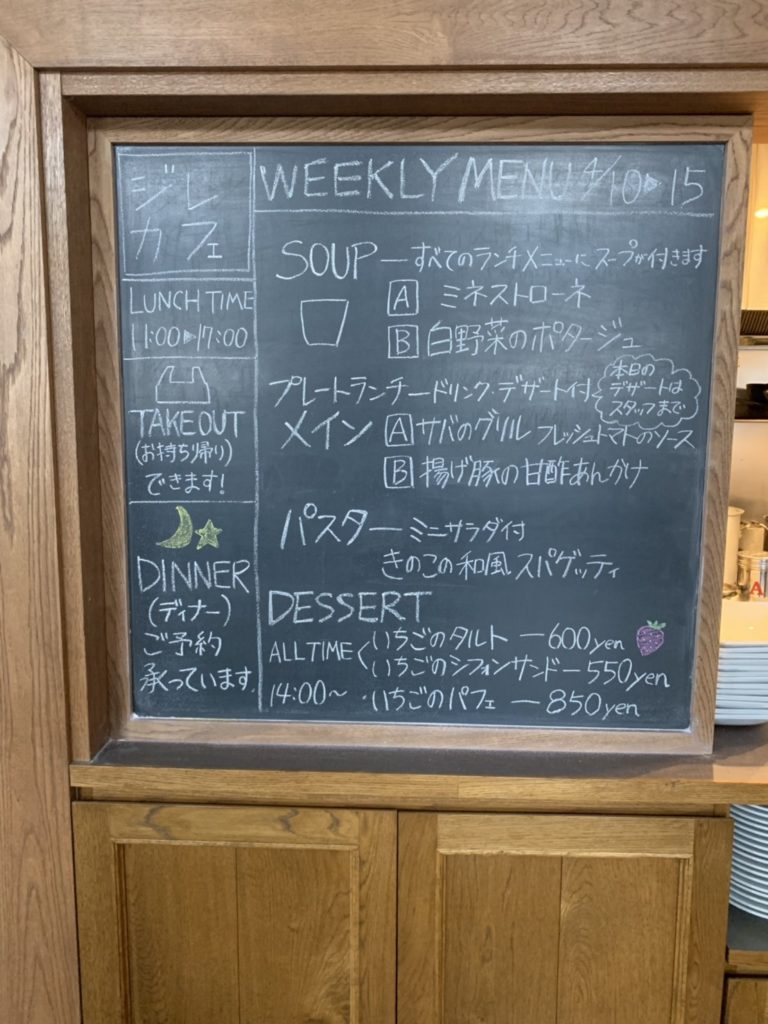 ジレ
カフェ
LUNCH TIME
11:00▶17:00
TAKEOUT
(お持ち帰り)
できます!
DINNER
(ディナー)
ご予約
承っています。
WEEKLY MENU 4/10▶15
SOUP ーすべてのランチメニューにスープが付きます
A ミネストローネ
B 白野菜のポタージュ
プレートランチ ードリンク・デザート付
本日の
デザートは
スタッフまで
メイン A サバのグリル フレッシュトマトのソース
B 揚げ豚の甘酢あんかけ
パスタ ー ミニサラダ付
きのこの和風スパゲッティ
DESSERT
ALL TIME
いちごのタルト ー 600yen
いちごのシフォンサンド ー 550yen
14:00〜 ・いちごのパフェ ー 850yen
A